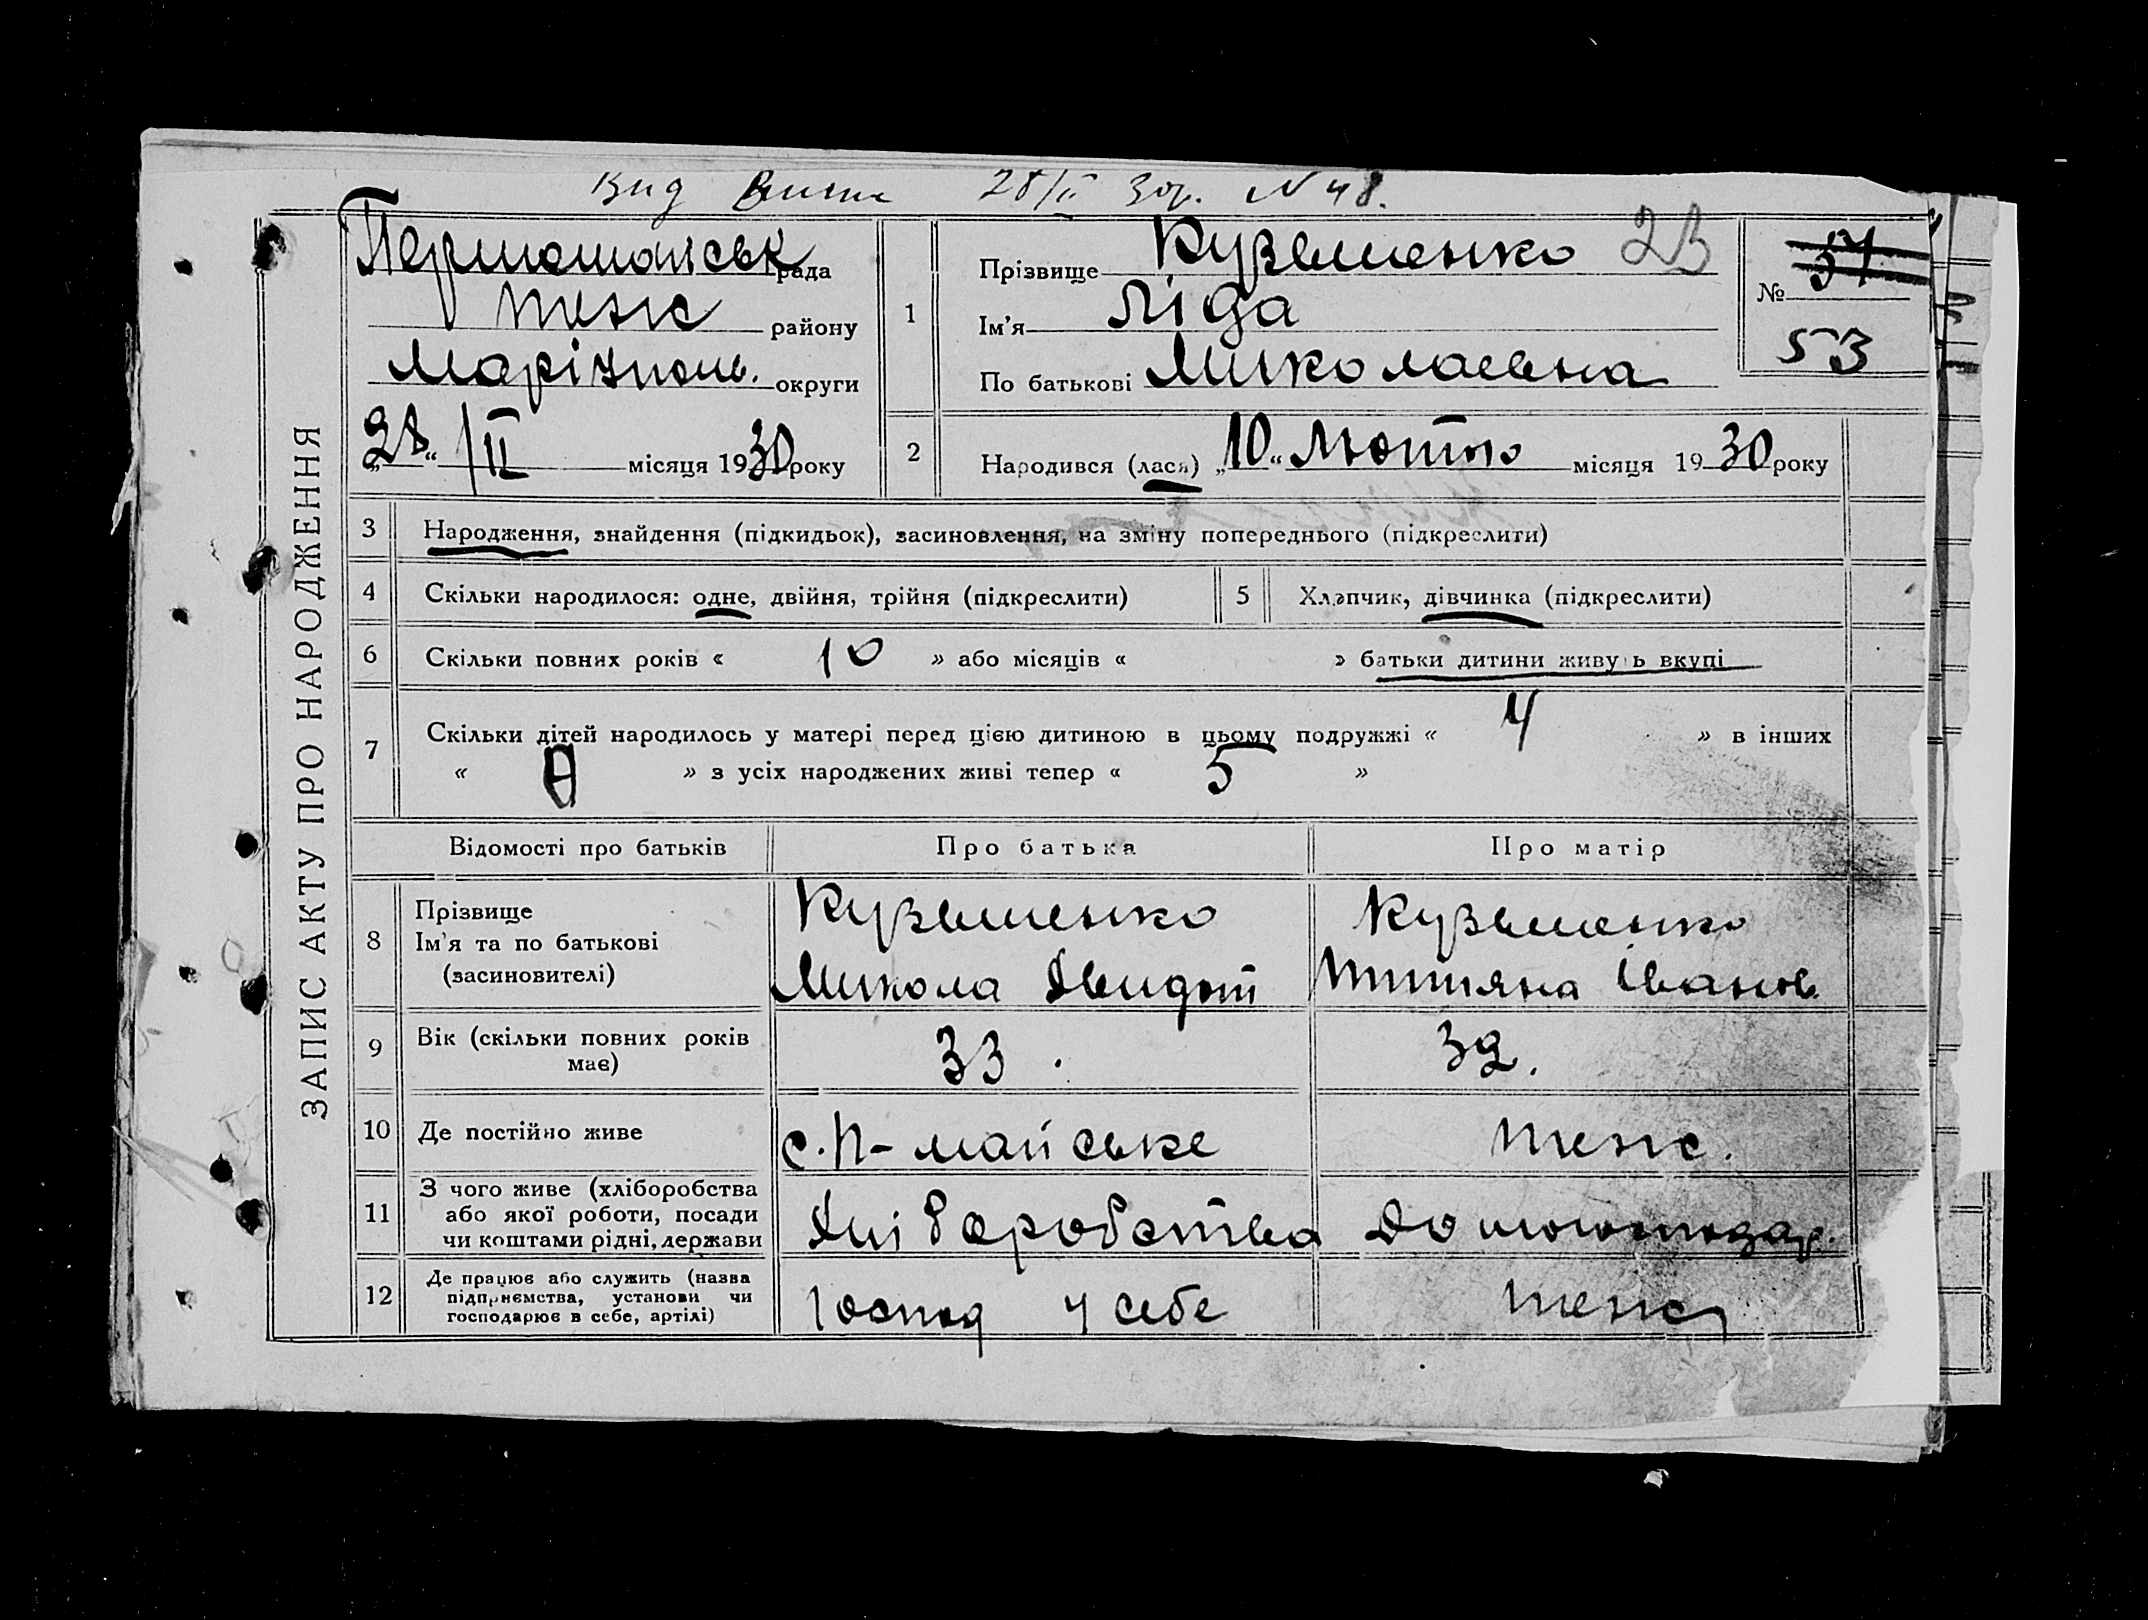 Вид Випис 28/II 30р. N 48.
ЗАПИС АКТУ ПРО НАРОДЖЕННЯ
Первомайськ рада
теж району
Маріупол. округи
„28“ /II місяця 1930 року
1
Прізвище Кузьменко 23
Ім'я Ліда
По батькові Миколаевна
№ 54
53
2 Народився (лася) „10“ Лютого місяця 1930 року
3 Народження, знайдення (підкидьок), засиновлення, на зміну попереднього (підкреслити)
4 Скільки народилося: одне, двійня, трійня (підкреслити)
5 Хлапчик, дівчинка (підкреслити)
6 Скільки повних років « 10 » або місяців « » батьки дитини живуть вкупі
7 Скільки дітей народилось у матері перед цією дитиною в цьому подружжі « 4 » в інших
« » з усіх народжених живі тепер « 5 »
Відомості про батьків Про батька Про матір
8 Прізвище
Ім'я та по батькові
(засиновителі)
Кузьменко
Микола
Кузьменко
Титяна Іванов.
9 Вік (скільки повних років
має)
33.
32.
10 Де постійно живе
с. П-майське
теж.
11 З чого живе (хліборобства
або якої роботи, посади
чи коштами рідні, держави
Хліборобства
Домогосподар.
12 Де працює або служить (назва
підприємства, установи чи
господарює в себе, артілі)
Господ у себе
теж